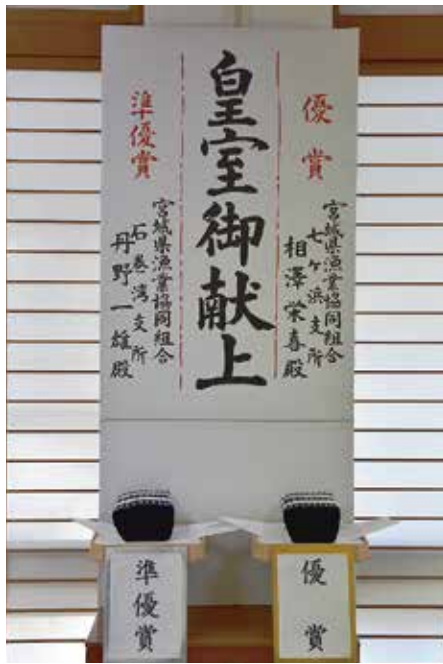 優賞
宮城県漁業協同組合
七ヶ浜支所
相澤栄喜殿
皇室御献上
準優賞
宮城県漁業協同組合
石巻湾支所
丹野一雄殿
優賞
準優賞